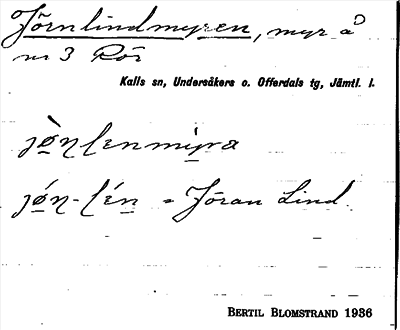 Jörnlindmyren, myr å
nr 3 Rör
Kalls sn, Undersåkers o. Offerdals tg, Jämtl. l.
jø̀n lenmyra
jǿn-lén = Jöran Lind
BERTIL BLOMSTRAND 1936